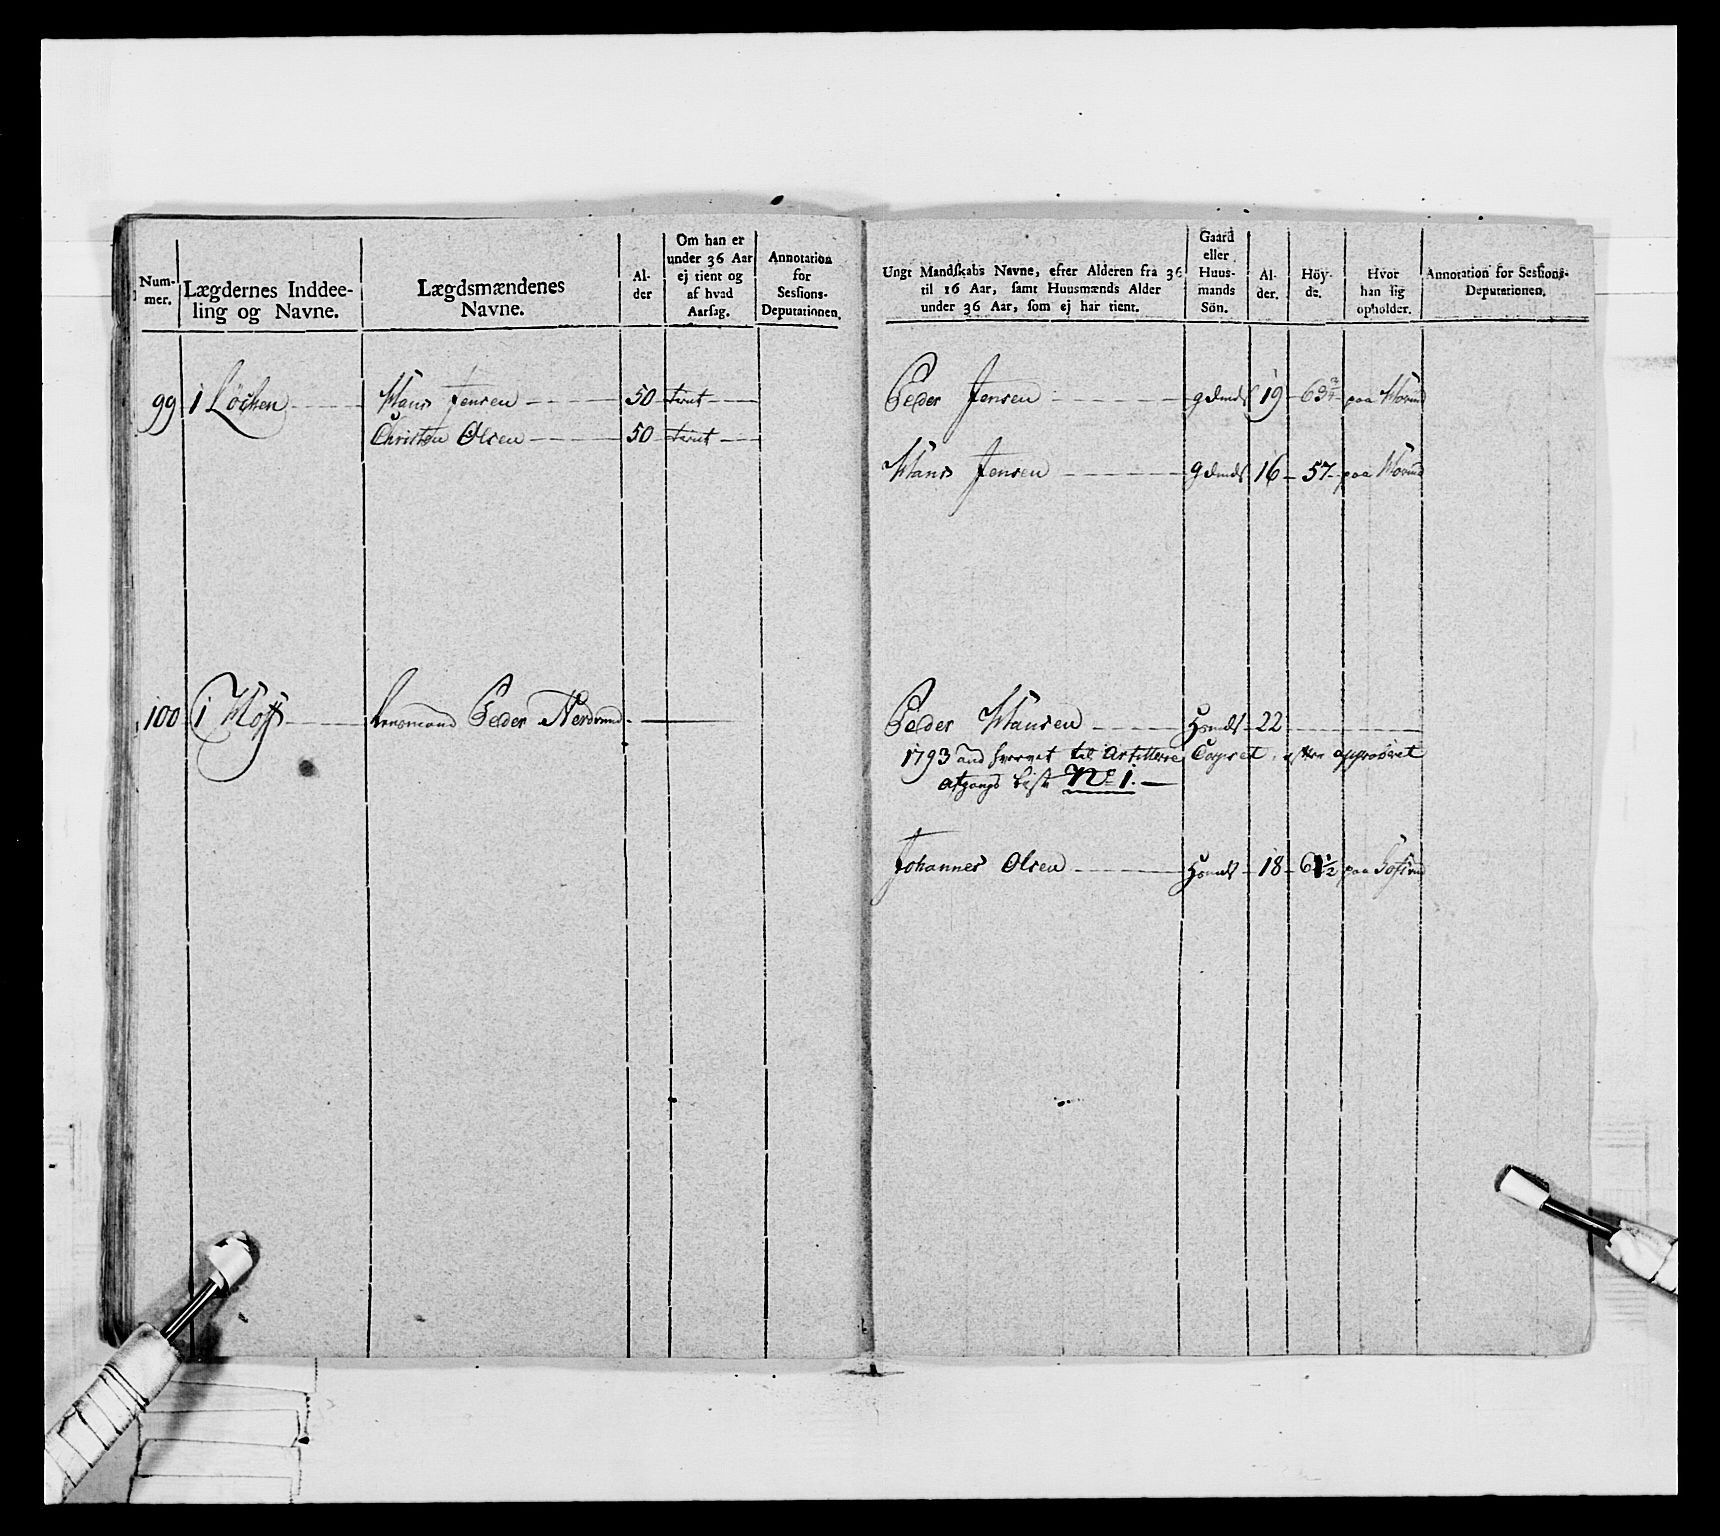 Num-
mer.
Lægdernes Inddee-
ling og Navne.
Lægdsmændenes
Navne.
Al-
der
Om han er
under 36 Aar
ej tient og
af hvad
Aarsag.
Annotation
for
Sessions-
Deputationen.
99 1 Løchen Hans Jensen 50 tient
Christen Olsen 50 tient
100 1 Hoff Lensmand Peder Nordrum
Ungt Mandskabs Navne, efter Alderen fra 36
til 16 Aar, samt Huusmænds Alder
under 36 Aar, som ej har tient.
Gaard
eller
Huus-
mands
Sön.
Al-
der.
Höy-
de.
Hvor
han sig
opholder.
Annotation for Sessions-
Deputationen.
Peder Jensen gdmds 19 63 paa
Hans Jensen gdmds 16 57 paa
Peder Hansen Hsmds 22
1793 til Artillerie Corpset, efter approberet
afgangs Liste No 1.
Johannes Olsen Hsmds 18 61½ paa